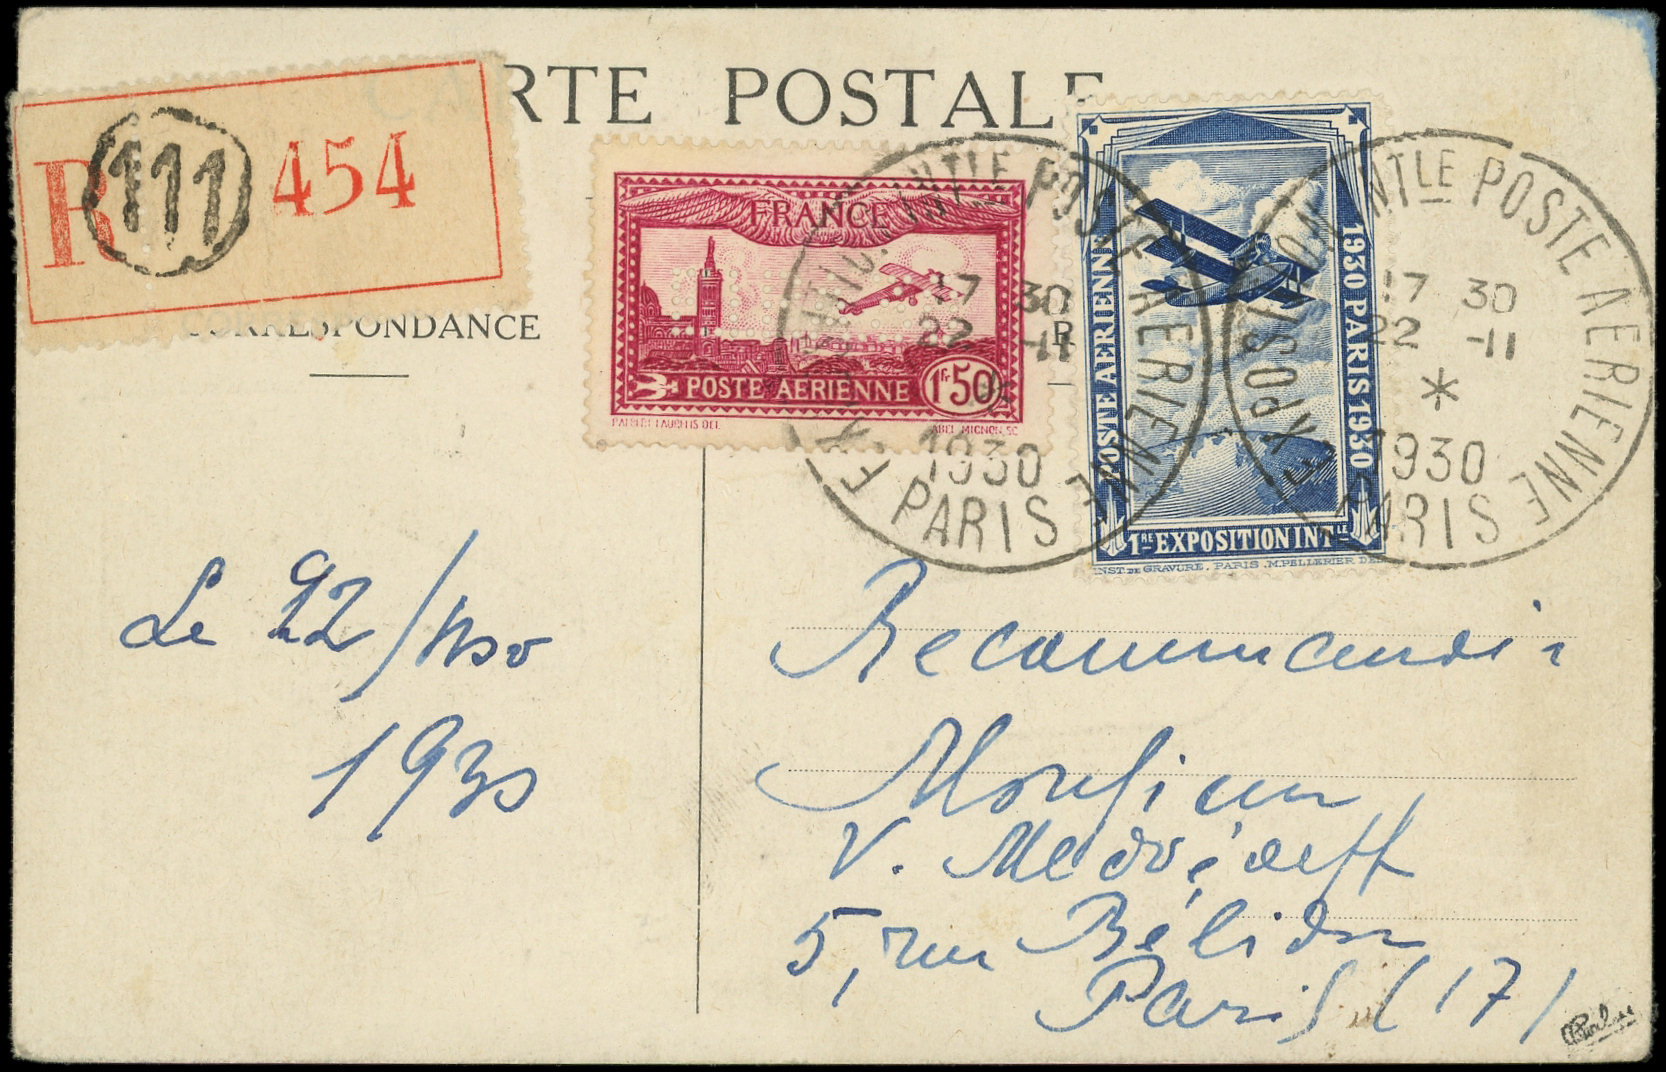 CARTE POSTALE
R 111 454
CORRESPONDANCE
FRANCE
POSTE AERIENNE 1Fr50
ABEL MIGNON. SC
EXPOSITION INTLE POSTE AERIENNE
17 30
22 -11
1930
PARIS
POSTE AERIENNE
1930 PARIS 1930
1RE EXPOSITION INTLE
INST. DE GRAVURE. PARIS. M. PELLERIER DEL
EXPOSITION INTLE POSTE AERIENNE
17 30
22 -11
*
1930
PARIS
Le 22/
1930
Monsieur
V. Medvédeff
5, rue Bélidor
Paris (17)